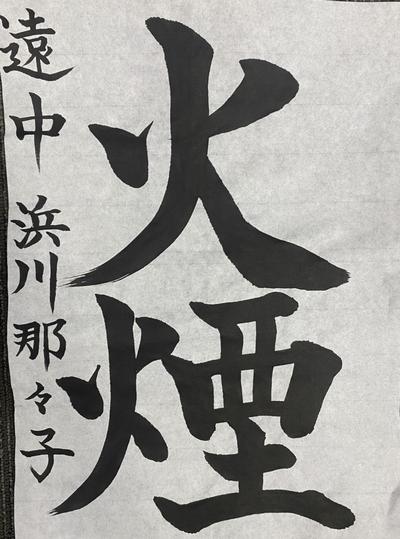 火煙
遠中 浜川那々子